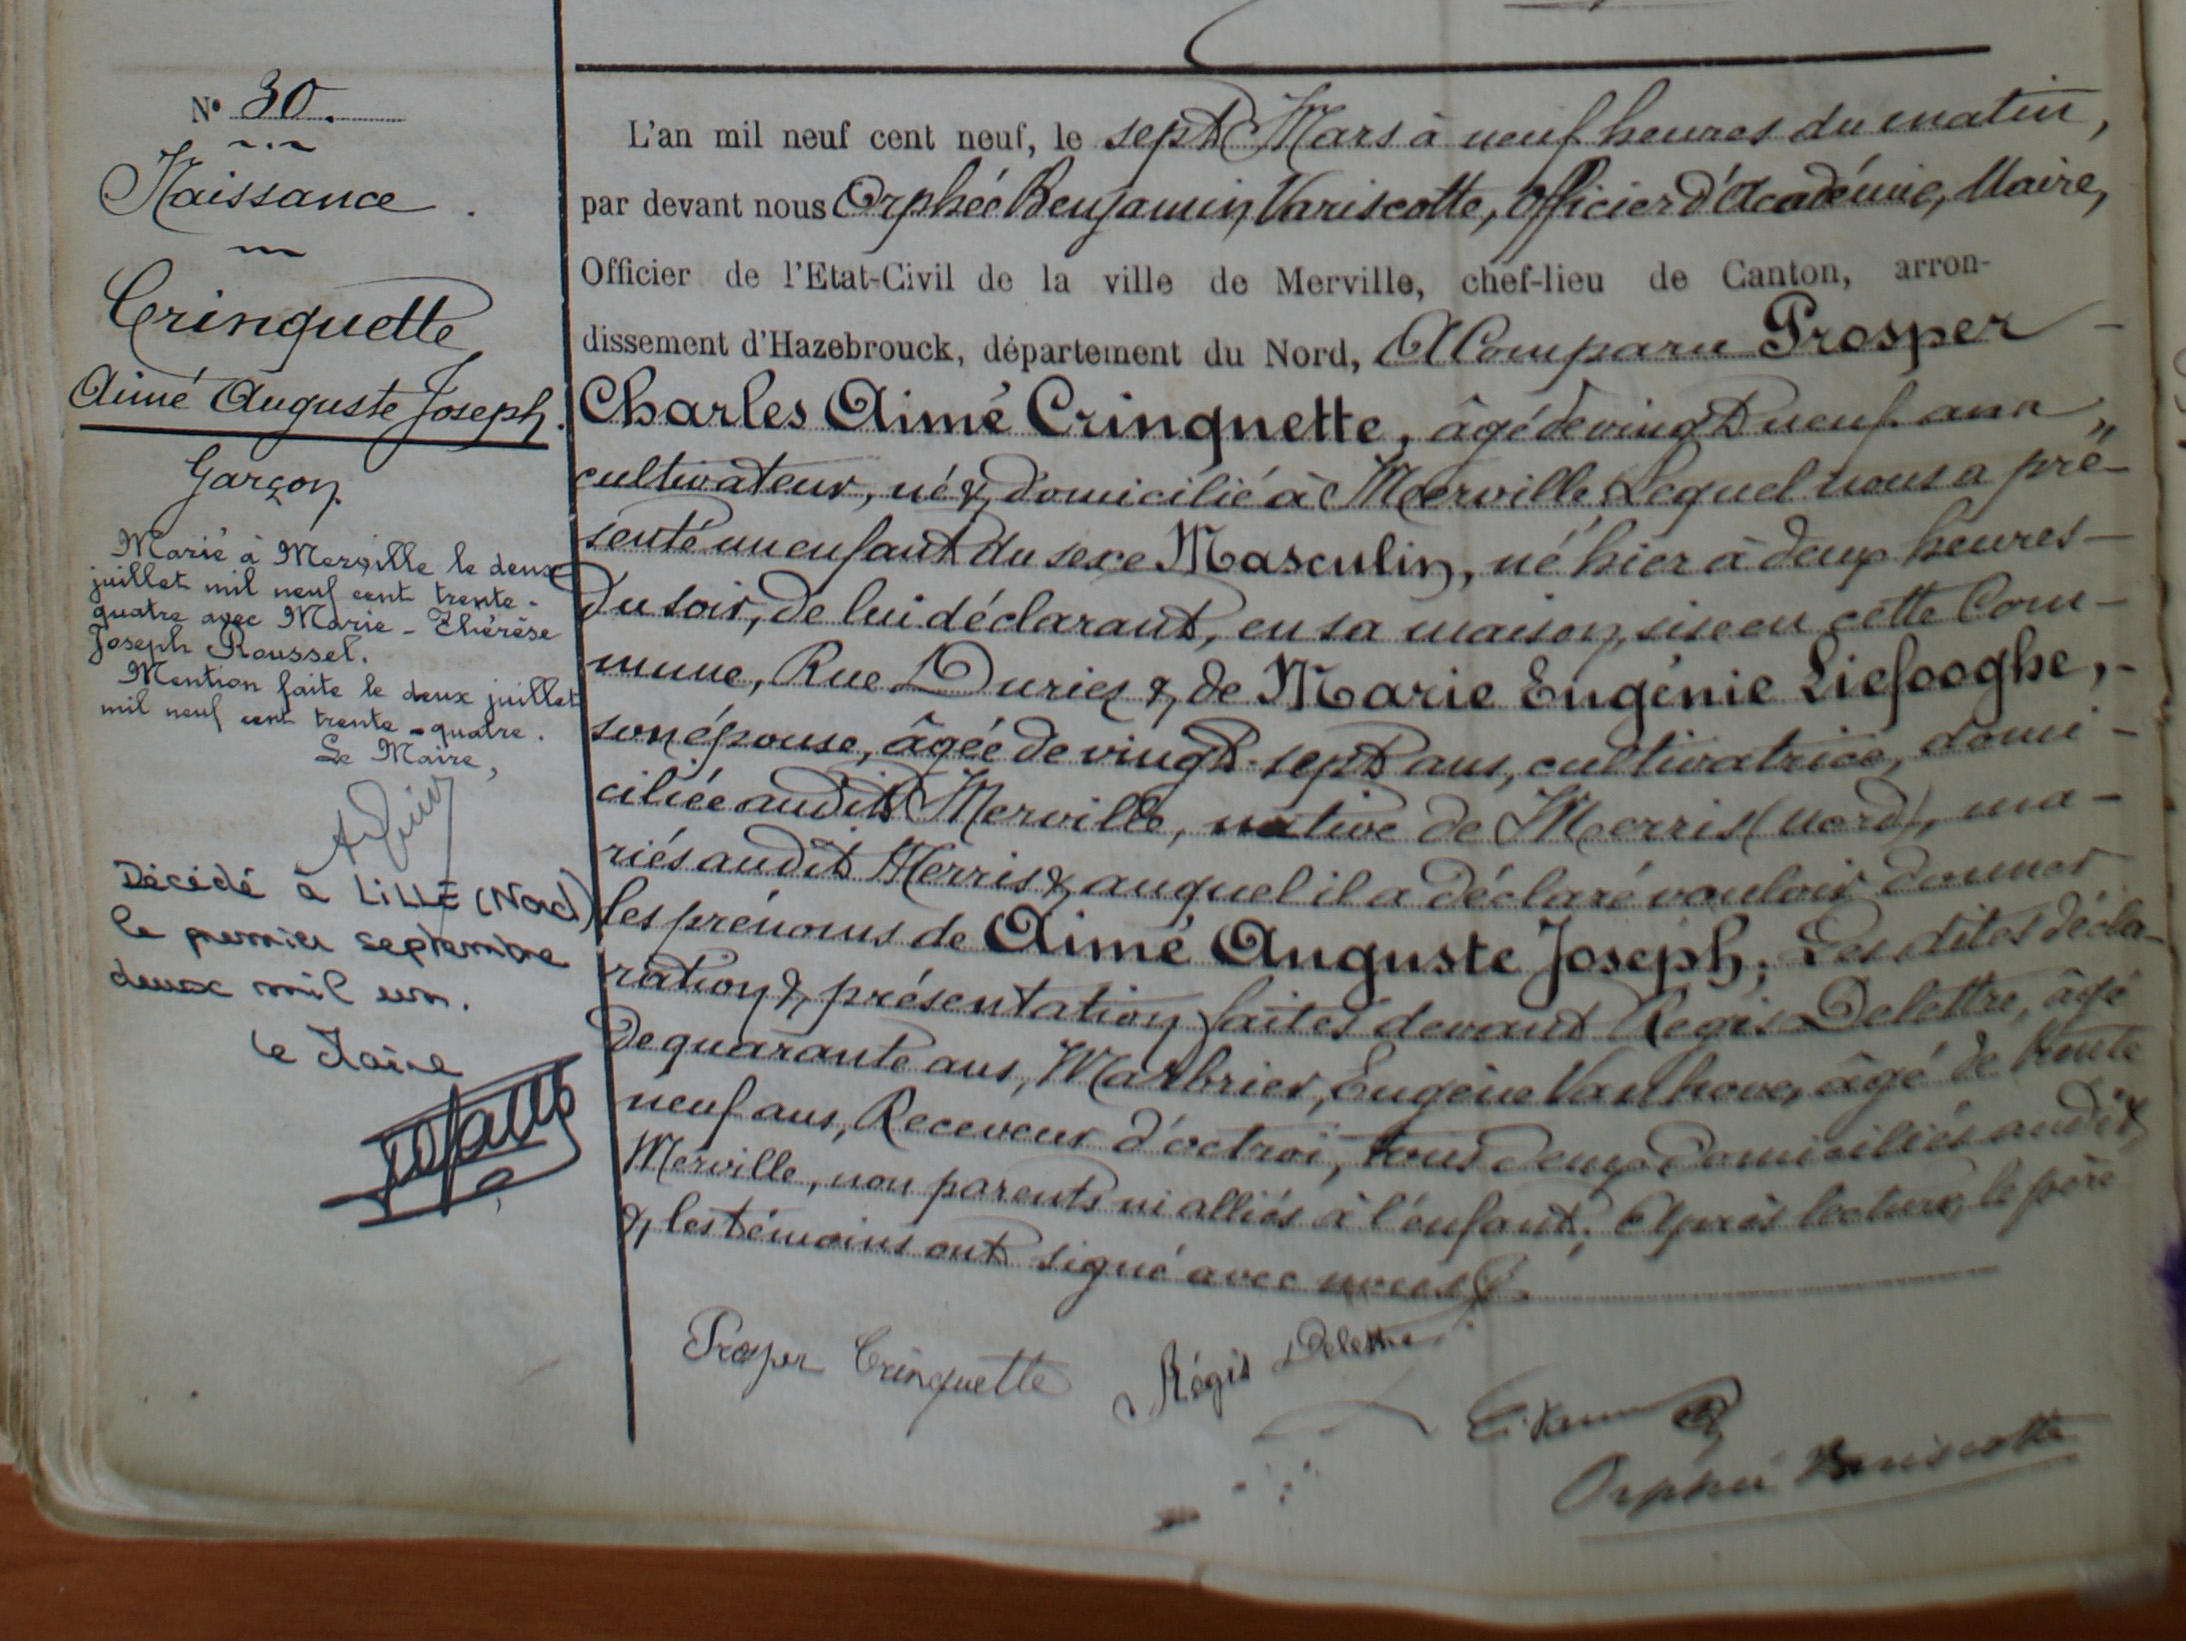 N° 30.
Naissance.
Crinquette
Aimé Auguste Joseph.
Garçon
Marié à Merville le deux
juillet mil neuf cent trente-
quatre avec Marie-Thérèse
Joseph Roussel.
Mention faite le deux juillet
mil neuf cent trente-quatre.
Le Maire,
Décédé à LILLE (Nord)
le premier septembre
deux mil un.
le Maire
L'an mil neuf cent neuf, le sept Mars à neuf heures du matin,
par devant nous Orphée Benjamin Variscotte, Officier d'Académie, Maire,
Officier de l'Etat-Civil de la ville de Merville, chef-lieu de Canton, arron-
dissement d'Hazebrouck, département du Nord, A Comparu Prosper -
Charles Aimé Crinquette, âgé de vingt neuf ans,
cultivateur, né &, domicilié à Merville Lequel nous a pré-
senté un enfant du sexe Masculin, né hier à deux heures -
du soir, de lui déclarant, en sa maison, sise en cette Com-
mune, Rue Duriez &, de Marie Eugénie Liefooghe, -
son épouse, âgée de vingt-sept ans, cultivatrice, domi-
ciliée audit Merville, native de Merris (Nord), ma-
riés audit Merris &, auquel il a déclaré vouloir donner
les prénoms de Aimé Auguste Joseph; Les dites décla-
ration &, présentation faites devant Régis Delettre, âgé
de quarante ans, Marbrier, Eugène Vanhove, âgé de trente
neuf ans, Receveur d'octroi, tous deux domiciliés audit
Merville, non parents ni alliés à l'enfant; Après lecture, le père
&, les témoins ont signé avec nous.
Prosper Crinquette Régis Delettre
Orphée Variscotte